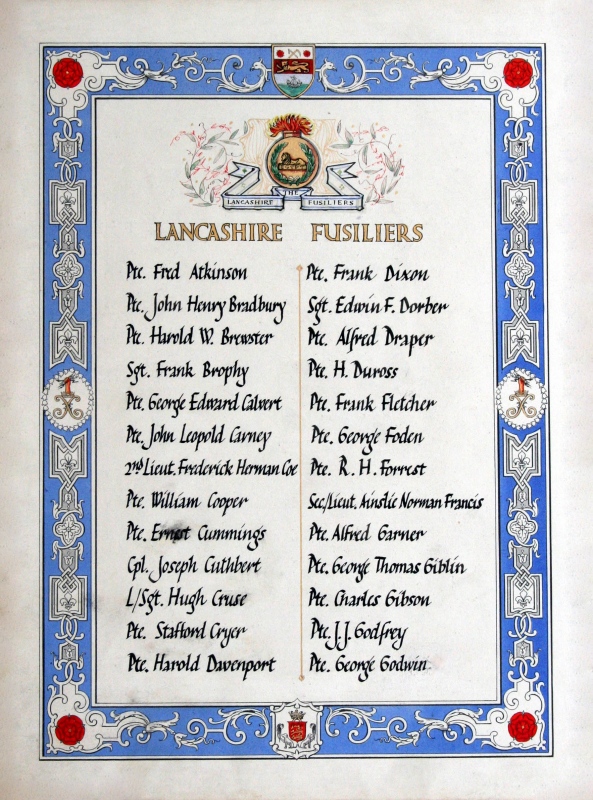 THE
LANCASHIRE FUSILIERS
LANCASHIRE FUSILIERS
Pte. Fred Atkinson
Pte. John Henry Bradbury
Pte. Harold W. Brewster
Sgt. Frank Brophy
Pte. George Edward Calvert
Pte. John Leopold Carney
2nd Lieut. Frederick Herman Coe
Pte. William Cooper
Pte. Ernest Cummings
Cpl. Joseph Cuthbert
L/Sgt. Hugh Cruse
Pte. Stafford Cryer
Pte. Harold Davenport
Pte. Frank Dixon
Sgt. Edwin F. Dorber
Pte. Alfred Draper
Pte. H. Duross
Pte. Frank Fletcher
Pte. George Foden
Pte. R. H. Forrest
Sec/Lieut. Ainslie Norman Francis
Pte. Alfred Garner
Pte. George Thomas Giblin
Pte. Charles Gibson
Pte. J. J. Godfrey
Pte. George Godwin